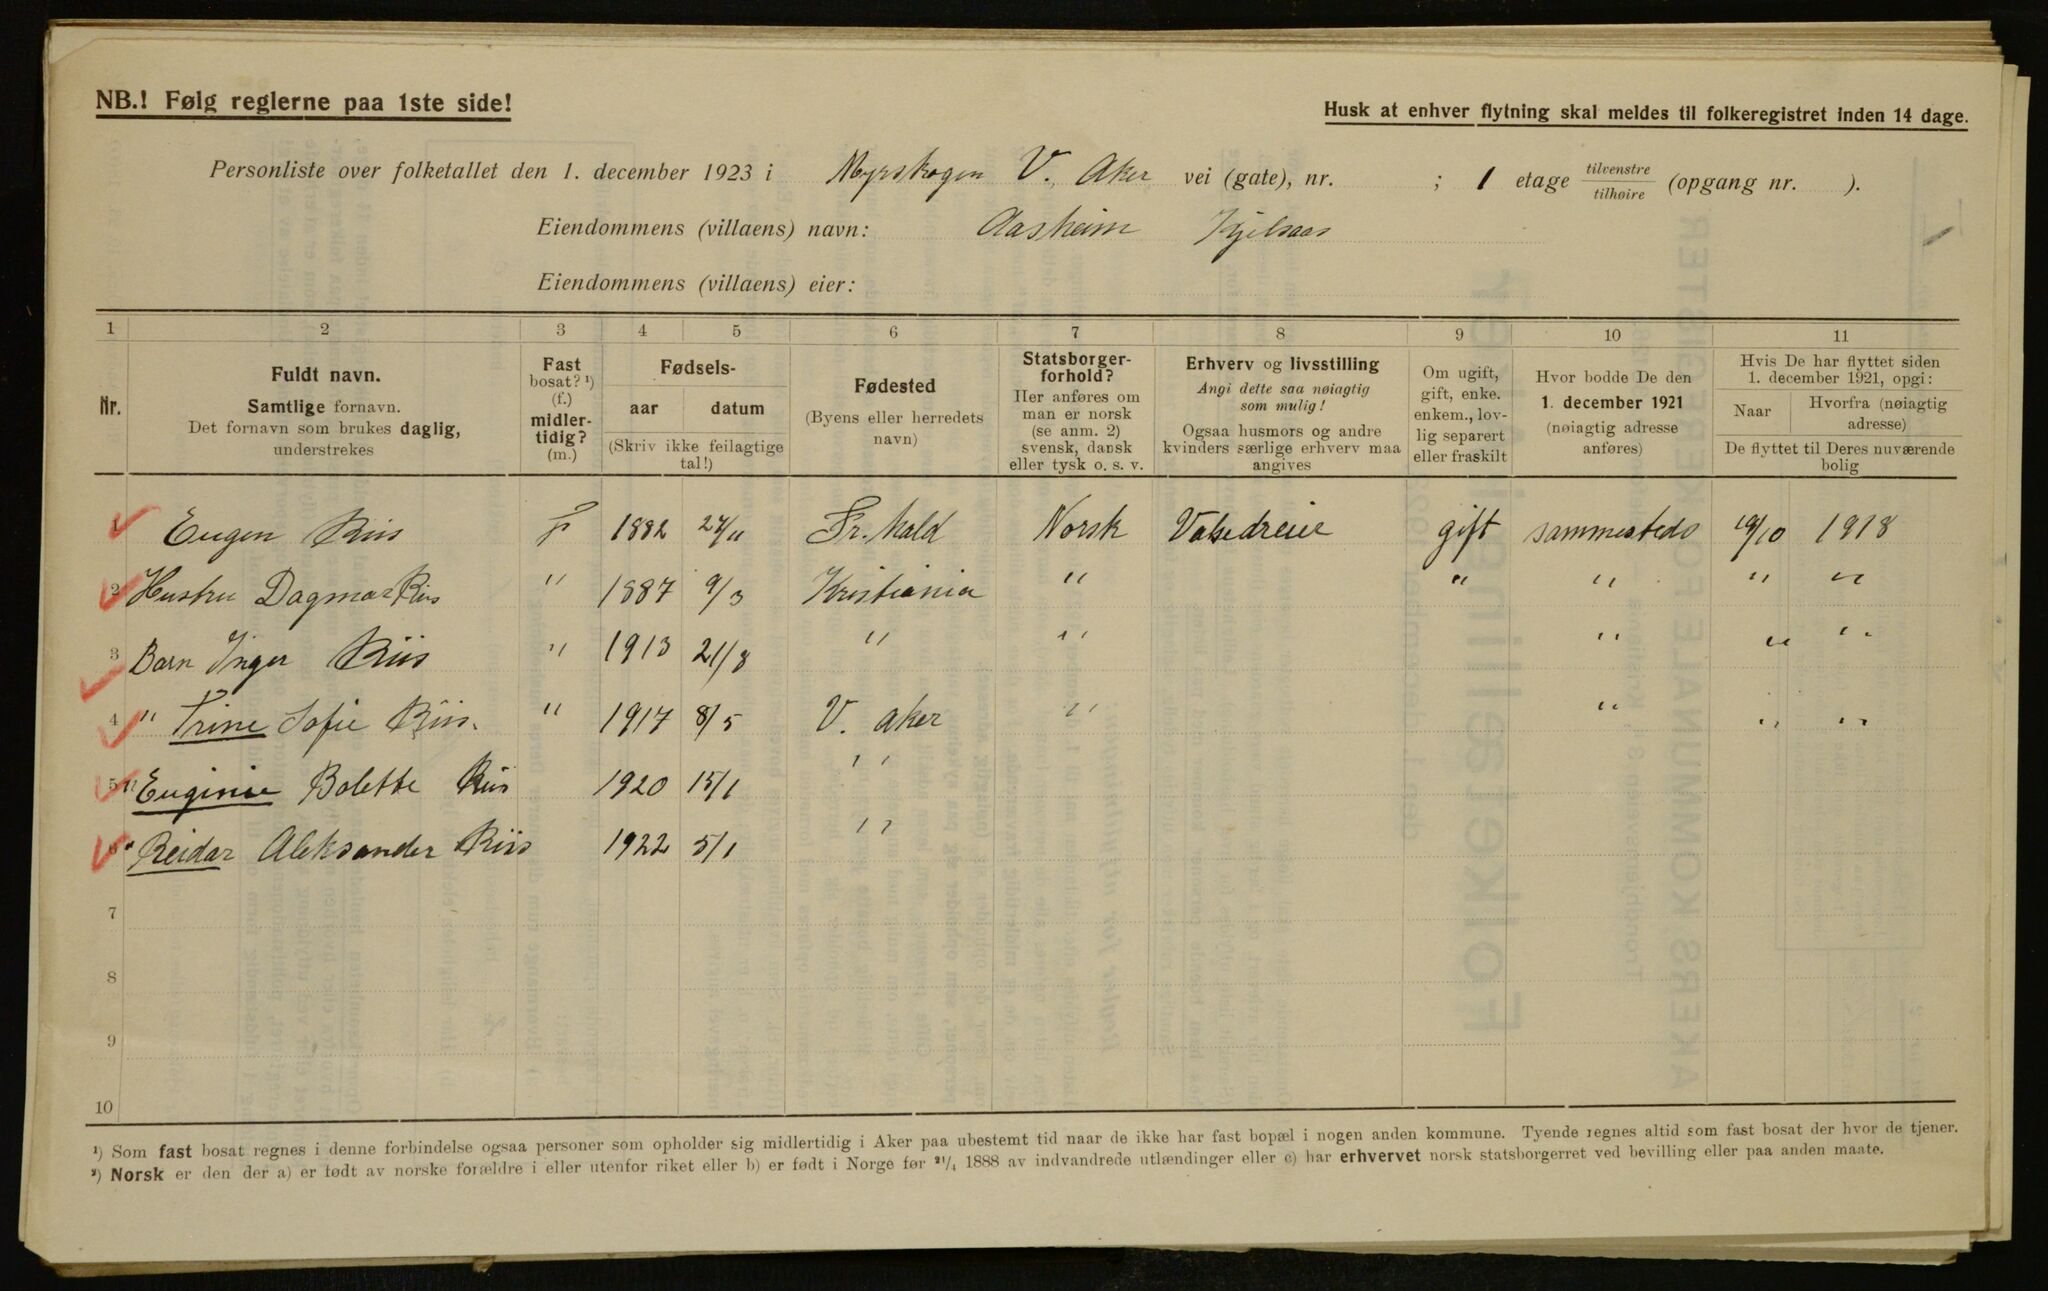 NB.! Følg reglerne paa 1ste side!
Husk at enhver flytning skal meldes til folkeregistret inden 14 dage.
Personliste over folketallet den 1. december 1923 i Myrskogen V. Aker vei (gate), nr. ; 1 etage tilvenstre tilhøire (opgang nr. ).
Eiendommens (villaens) navn: Aasheim Kjelsaas
Eiendommens (villaens) eier:
1 2 3 4 5 6 7 8 9 10 11
Nr.
Fuldt navn.
Samtlige fornavn.
Det fornavn som brukes daglig,
understrekes
Fast
bosat? ¹)
(f.)
midler-
tidig?
(m.)
Fødsels-
aar datum
(Skriv ikke feilagtige
tal!)
Fødested
(Byens eller herredets
navn)
Statsborger-
forhold?
Her anføres om
man er norsk
(se anm. 2)
svensk, dansk
eller tysk o. s. v.
Erhverv og livsstilling
Angi dette saa nøiagtig
som mulig!
Ogsaa husmors og andre
kvinders særlige erhverv maa
angives
Om ugift,
gift, enke.
enkem., lov-
lig separert
eller fraskilt
Hvor bodde De den
1. december 1921
(nøiagtig adresse
anføres)
Hvis De har flyttet siden
1. december 1921, opgi:
Naar Hvorfra (nøiagtig
adresse)
De flyttet til Deres nuværende
bolig
1 Eugen Riis f 1882 Fr.hald Norsk gift sammesteds 19/10 1918
2 Hustru Dagmar Riis " 1887 9/3 Kristiania " " " " "
3 Barn Inger Riis " 1913 21/8 " " " " "
4 " Trine Sofie Riis. " 1917 8/5 V. Aker " " " "
5 " Euginie Bolette Riis 1920 15/1 " "
6 " Reidar Aleksander Riis 1922 5/1 " "
7
8
9
10
¹) Som fast bosat regnes i denne forbindelse ogsaa personer som opholder sig midlertidig i Aker paa ubestemt tid naar de ikke har fast bopæl i nogen anden kommune. Tyende regnes altid som fast bosat der hvor de tjener.
²) Norsk er den der a) er født av norske forældre i eller utenfor riket eller b) er født i Norge før ²¹/₄ 1888 av indvandrede utlændinger eller c) har erhvervet norsk statsborgerret ved bevilling eller paa anden maate.